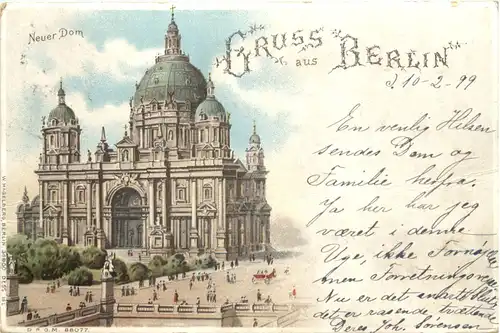 Neuer Dom
GRUSS
aus
BERLIN
d 10-2-99
En venlig Hilsen
sendes Dem og
Familie herfra.
Ja her har jeg
været i denne
Uge, ikke
men Forretningen
Nu er det snart
det er rasende,
Deres Joh Sørensen
D R G M. 88077.
W. HAGELBERG, BERLIN